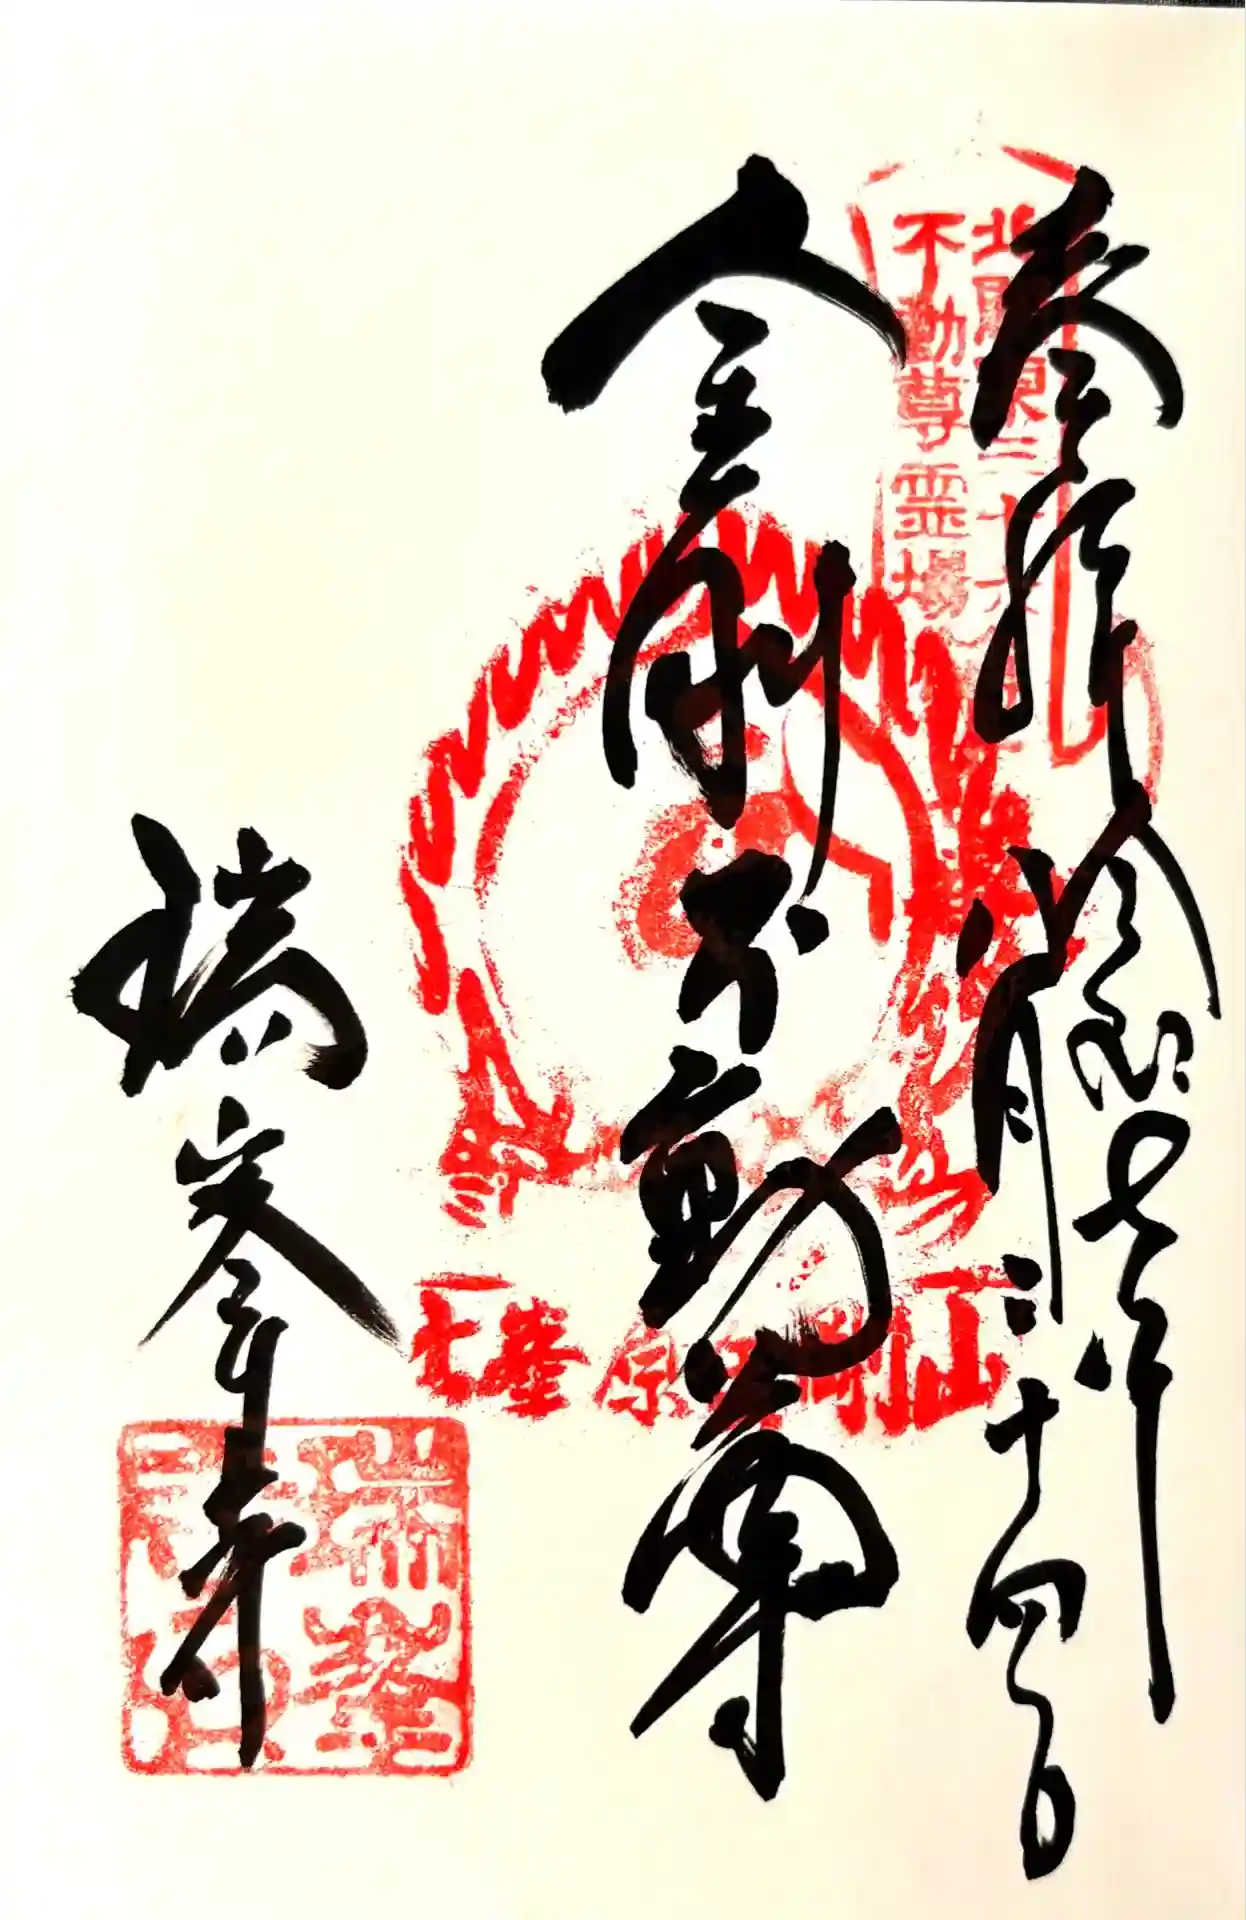 奉拝
令和七年
八月二十四日
北関東三十六
不動尊霊場
金剛不動尊
瑞峯寺